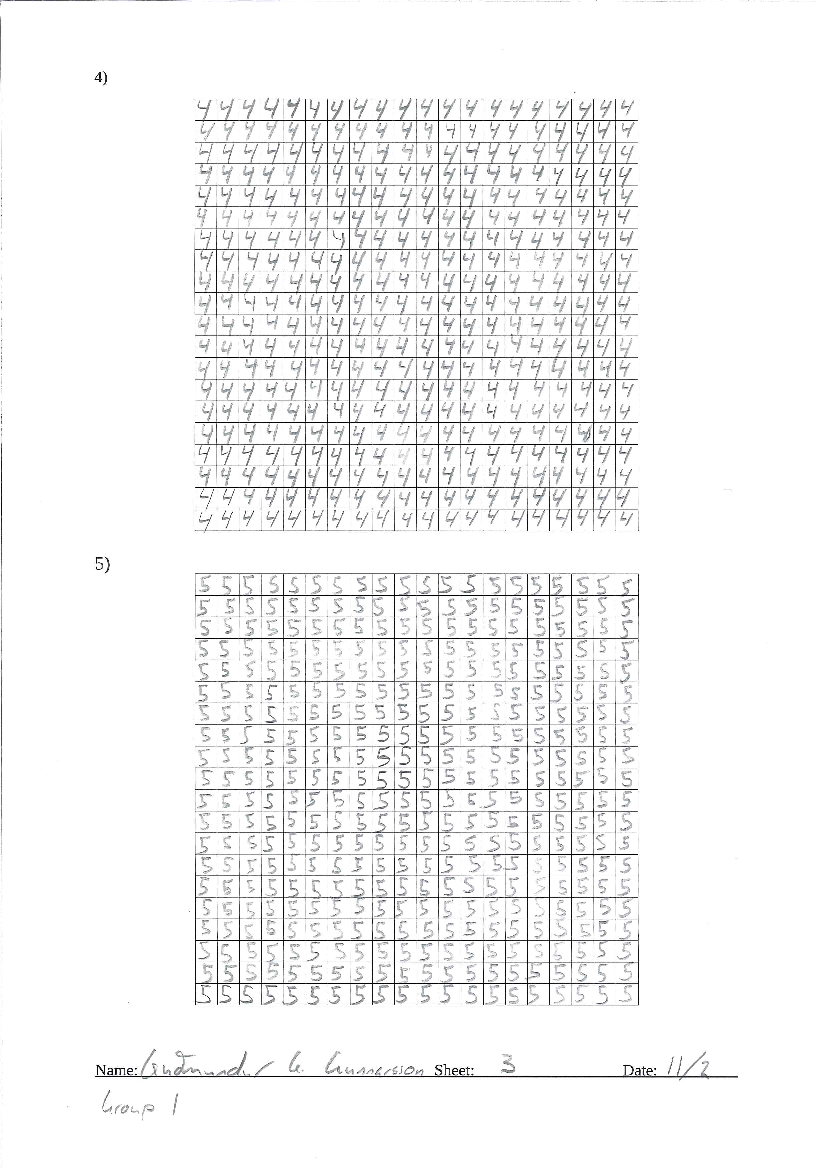 4)
4 4 4 4 4 4 4 4 4 4 4 4 4 4 4 4 4 4 4 4
4 4 4 4 4 4 4 4 4 4 4 4 4 4 4 4 4 4 4 4
4 4 4 4 4 4 4 4 4 4 4 4 4 4 4 4 4 4 4 4
4 4 4 4 4 4 4 4 4 4 4 4 4 4 4 4 4 4 4 4
4 4 4 4 4 4 4 4 4 4 4 4 4 4 4 4 4 4 4 4
4 4 4 4 4 4 4 4 4 4 4 4 4 4 4 4 4 4 4 4
4 4 4 4 4 4 4 4 4 4 4 4 4 4 4 4 4 4 4 4
4 4 4 4 4 4 4 4 4 4 4 4 4 4 4 4 4 4 4 4
4 4 4 4 4 4 4 4 4 4 4 4 4 4 4 4 4 4 4 4
4 4 4 4 4 4 4 4 4 4 4 4 4 4 4 4 4 4 4 4
4 4 4 4 4 4 4 4 4 4 4 4 4 4 4 4 4 4 4 4
4 4 4 4 4 4 4 4 4 4 4 4 4 4 4 4 4 4 4 4
4 4 4 4 4 4 4 4 4 4 4 4 4 4 4 4 4 4 4 4
4 4 4 4 4 4 4 4 4 4 4 4 4 4 4 4 4 4 4 4
4 4 4 4 4 4 4 4 4 4 4 4 4 4 4 4 4 4 4 4
4 4 4 4 4 4 4 4 4 4 4 4 4 4 4 4 4 4 4 4
4 4 4 4 4 4 4 4 4 4 4 4 4 4 4 4 4 4 4 4
4 4 4 4 4 4 4 4 4 4 4 4 4 4 4 4 4 4 4 4
4 4 4 4 4 4 4 4 4 4 4 4 4 4 4 4 4 4 4 4
4 4 4 4 4 4 4 4 4 4 4 4 4 4 4 4 4 4 4 4
5)
5 5 5 5 5 5 5 5 5 5 5 5 5 5 5 5 5 5 5 5
5 5 5 5 5 5 5 5 5 5 5 5 5 5 5 5 5 5 5 5
5 5 5 5 5 5 5 5 5 5 5 5 5 5 5 5 5 5 5 5
5 5 5 5 5 5 5 5 5 5 5 5 5 5 5 5 5 5 5 5
5 5 5 5 5 5 5 5 5 5 5 5 5 5 5 5 5 5 5 5
5 5 5 5 5 5 5 5 5 5 5 5 5 5 5 5 5 5 5 5
5 5 5 5 5 5 5 5 5 5 5 5 5 5 5 5 5 5 5 5
5 5 5 5 5 5 5 5 5 5 5 5 5 5 5 5 5 5 5 5
5 5 5 5 5 5 5 5 5 5 5 5 5 5 5 5 5 5 5 5
5 5 5 5 5 5 5 5 5 5 5 5 5 5 5 5 5 5 5 5
5 5 5 5 5 5 5 5 5 5 5 5 5 5 5 5 5 5 5 5
5 5 5 5 5 5 5 5 5 5 5 5 5 5 5 5 5 5 5 5
5 5 5 5 5 5 5 5 5 5 5 5 5 5 5 5 5 5 5 5
5 5 5 5 5 5 5 5 5 5 5 5 5 5 5 5 5 5 5 5
5 5 5 5 5 5 5 5 5 5 5 5 5 5 5 5 5 5 5 5
5 5 5 5 5 5 5 5 5 5 5 5 5 5 5 5 5 5 5 5
5 5 5 5 5 5 5 5 5 5 5 5 5 5 5 5 5 5 5 5
5 5 5 5 5 5 5 5 5 5 5 5 5 5 5 5 5 5 5 5
5 5 5 5 5 5 5 5 5 5 5 5 5 5 5 5 5 5 5 5
5 5 5 5 5 5 5 5 5 5 5 5 5 5 5 5 5 5 5 5
Name: Guðmundur G. Gunnarsson Sheet: 3 Date: 11/2
Group 1